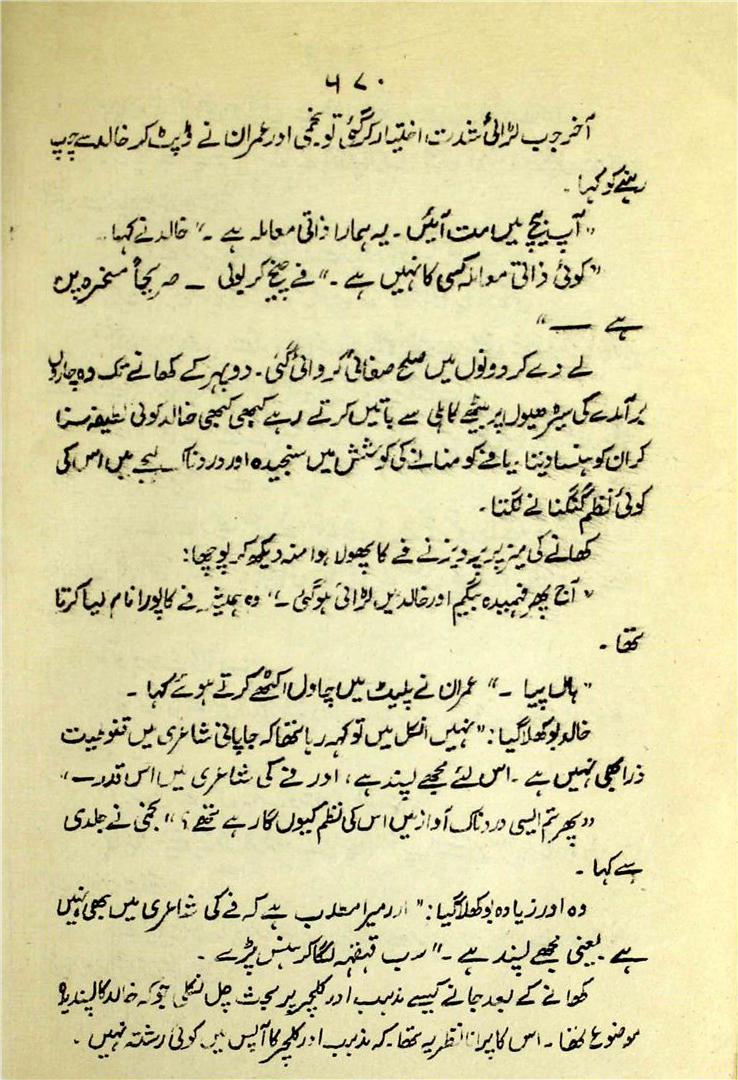 ۶۷۰
آخر جب لڑائی شدت اختیار کر گئی تو نجمی اور عمران نے ڈپٹ کر خالد سے چپ
رہنے کو کہا۔
"آپ بیچ میں مت آئیں۔ یہ ہمارا ذاتی معاملہ ہے۔" خالد نے کہا۔
"کوئی ذاتی معاملہ کسی کا نہیں ہے۔" فے چیخ کر بولی — صریحاً مسخرہ پن
ہے —"
لے دے کر دونوں میں صلح صفائی کروائی گئی۔ دوپہر کے کھانے تک وہ چاروں
برآمدے کی سیڑھیوں پر بیٹھے کاہلی سے باتیں کرتے رہے کبھی کبھی خالد کوئی لطیفہ سنا
کر ان کو ہنسا دیتا۔ یا فے کو منانے کی کوشش میں سنجیدہ اور دردناک لہجے میں اس کی
کوئی نظم گنگنانے لگتا۔
کھانے کی میز پر پرویز نے فے کا پھولا ہوا منہ دیکھ کر پوچھا:
"آج پھر فہمیدہ بیگم اور خالد میں لڑائی ہو گئی۔" وہ ہمیشہ فے کا پورا نام لیا کرتا
تھا۔
"ہاں پپا۔" عمران نے پلیٹ میں چاول اکٹھے کرتے ہوئے کہا۔
خالد بوکھلا گیا: "نہیں انکل میں تو کہہ رہا تھا کہ جاپانی شاعری میں قنوطیت
ذرا بھی نہیں ہے۔ اس لئے مجھے پسند ہے، اور فے کی شاعری میں اس قدر —"
"پھر تم ایسی دردناک آواز میں اس کی نظم کیوں گا رہے تھے؟" نجمی نے جلدی
سے کہا۔
وہ اور زیادہ بوکھلا گیا: "اور میرا مطلب ہے کہ فے کی شاعری میں بھی نہیں
ہے یعنی مجھے پسند ہے۔" سب قہقہہ لگا کر ہنس پڑے۔
کھانے کے بعد جانے کیسے مذہب اور کلچر پر بحث چل نکلی جو کہ خالد کا پسندیدہ
موضوع تھا۔ اس کا پرانا نظریہ تھا۔ کہ مذہب اور کلچر کا آپس میں کوئی رشتہ نہیں۔